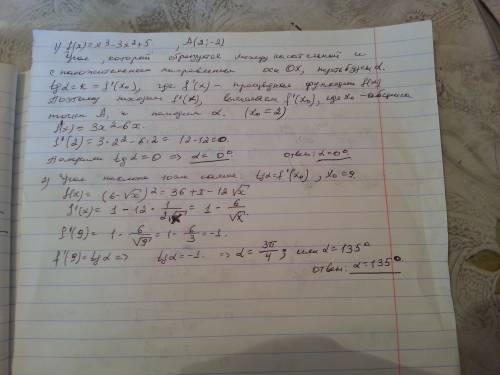 1) f(x)=x³-3x²+5 , A(2;-2)
Угол, который образуется между касательной и
с положительном направлением оси OX, пусть будет α.
tgα = k = f'(x₀), где f'(x) - производная функции f(x)
Поэтому находим f'(x), вычисляем f'(x₀), где x₀ - абсцисса
точки A, и находим α. (x₀=2)
f'(x) = 3x²-6x.
f'(2) = 3·2²-6·2 = 12-12=0.
Получили tgα=0 => α=0° ответ: α=0°
2) Угол тоже самое: tgα=f'(x₀), x₀=9
f(x) = (6-√x)² = 36+x-12√x
f'(x) = 1-12·1/2√x = 1-6/√x.
f'(9) = 1-6/√9 = 1-6/3=-1.
f'(9)=tgα => tgα=-1. => α=3π/4; или α=135°
ответ: α=135°